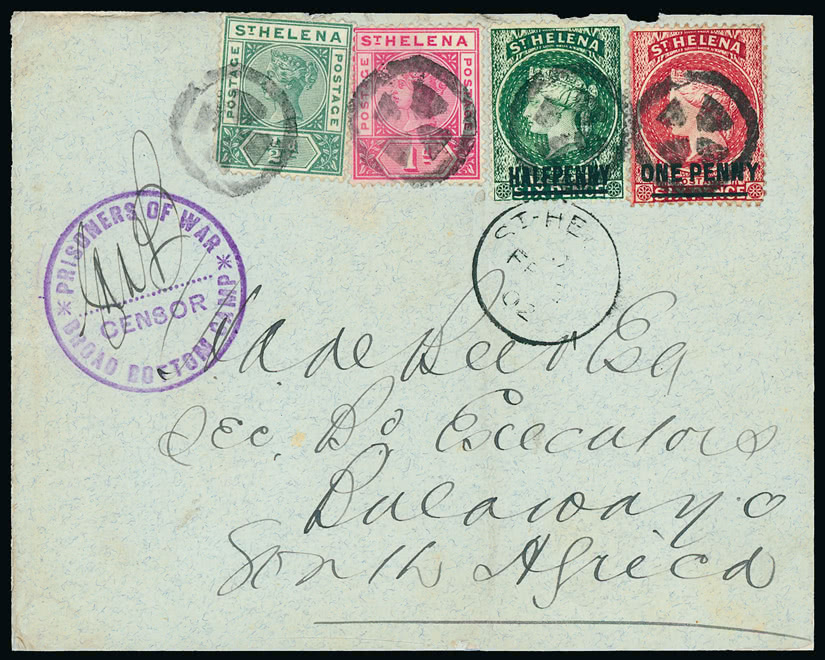 ST HELENA
POSTAGE
POSTAGE
1/2d
ST HELENA
POSTAGE
POSTAGE
1d
ST HELENA
HALFPENNY
SIXPENCE
ST HELENA
ONE PENNY
SIXPENCE
PRISONERS OF WAR
CENSOR
BROAD BOTTOM CAMP
ST-HE
02
de Esq
Sec. Bd Executors
Bulawayo
South Africa